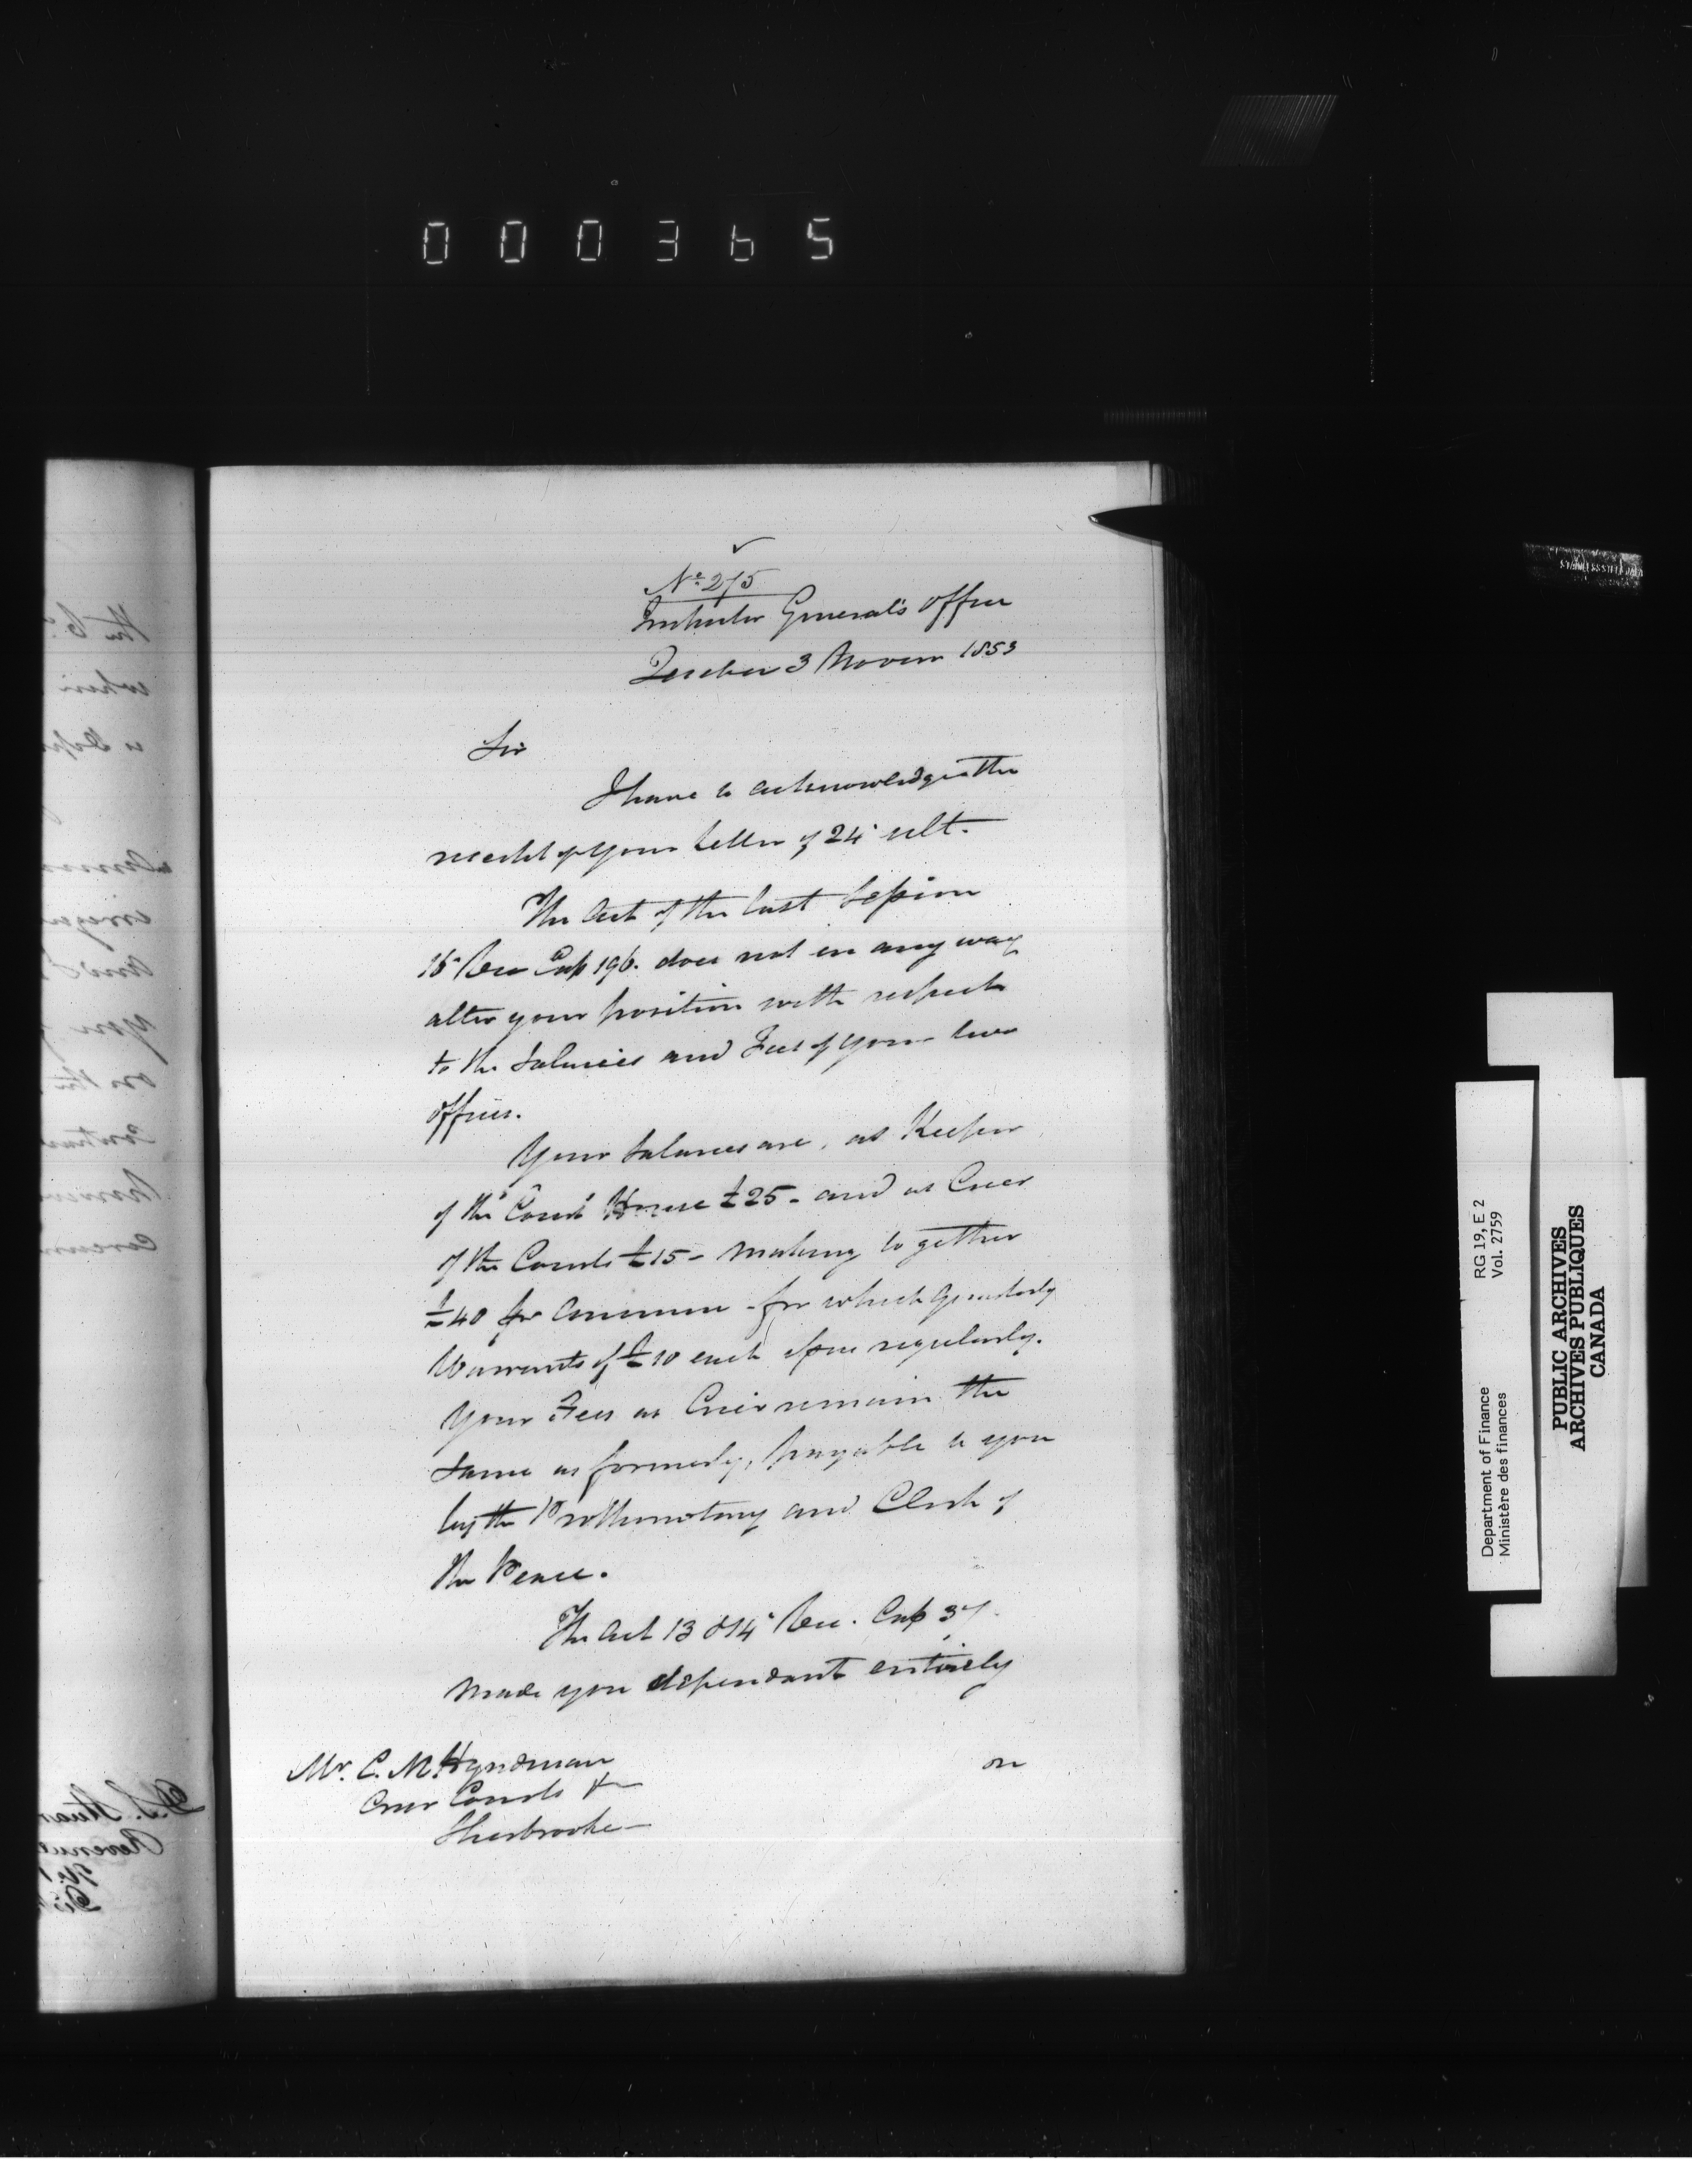 000365
No. 275
Inspector General's Office
Quebec 3 Novem 1853
Sir
I have to acknowledge the
receipt of your letter of 24 ult.
The Act of the last Session
16 Vic Cap 196. does not in any way
alter your position with respect
to the Salaries and Fees of your two
offices.
Your Salaries are, as Keeper
of the Court House £25 - and as Crier
of the Courts £15 - making together
£40 per annum - for which Quarterly
Warrants of £10 each issue regularly.
Your Fees as Crier remain the
same as formerly, payable to you
by the Prothonotary and Clerk of
the Peace.
The Act 13 & 14 Vic. Cap 37
made you dependant entirely
on
Mr. C. M. Hyndman
Crier Courts &
Sherbrooke
RG 19, E 2
Vol. 2759
Department of Finance
Ministère des finances
PUBLIC ARCHIVES
ARCHIVES PUBLIQUES
CANADA